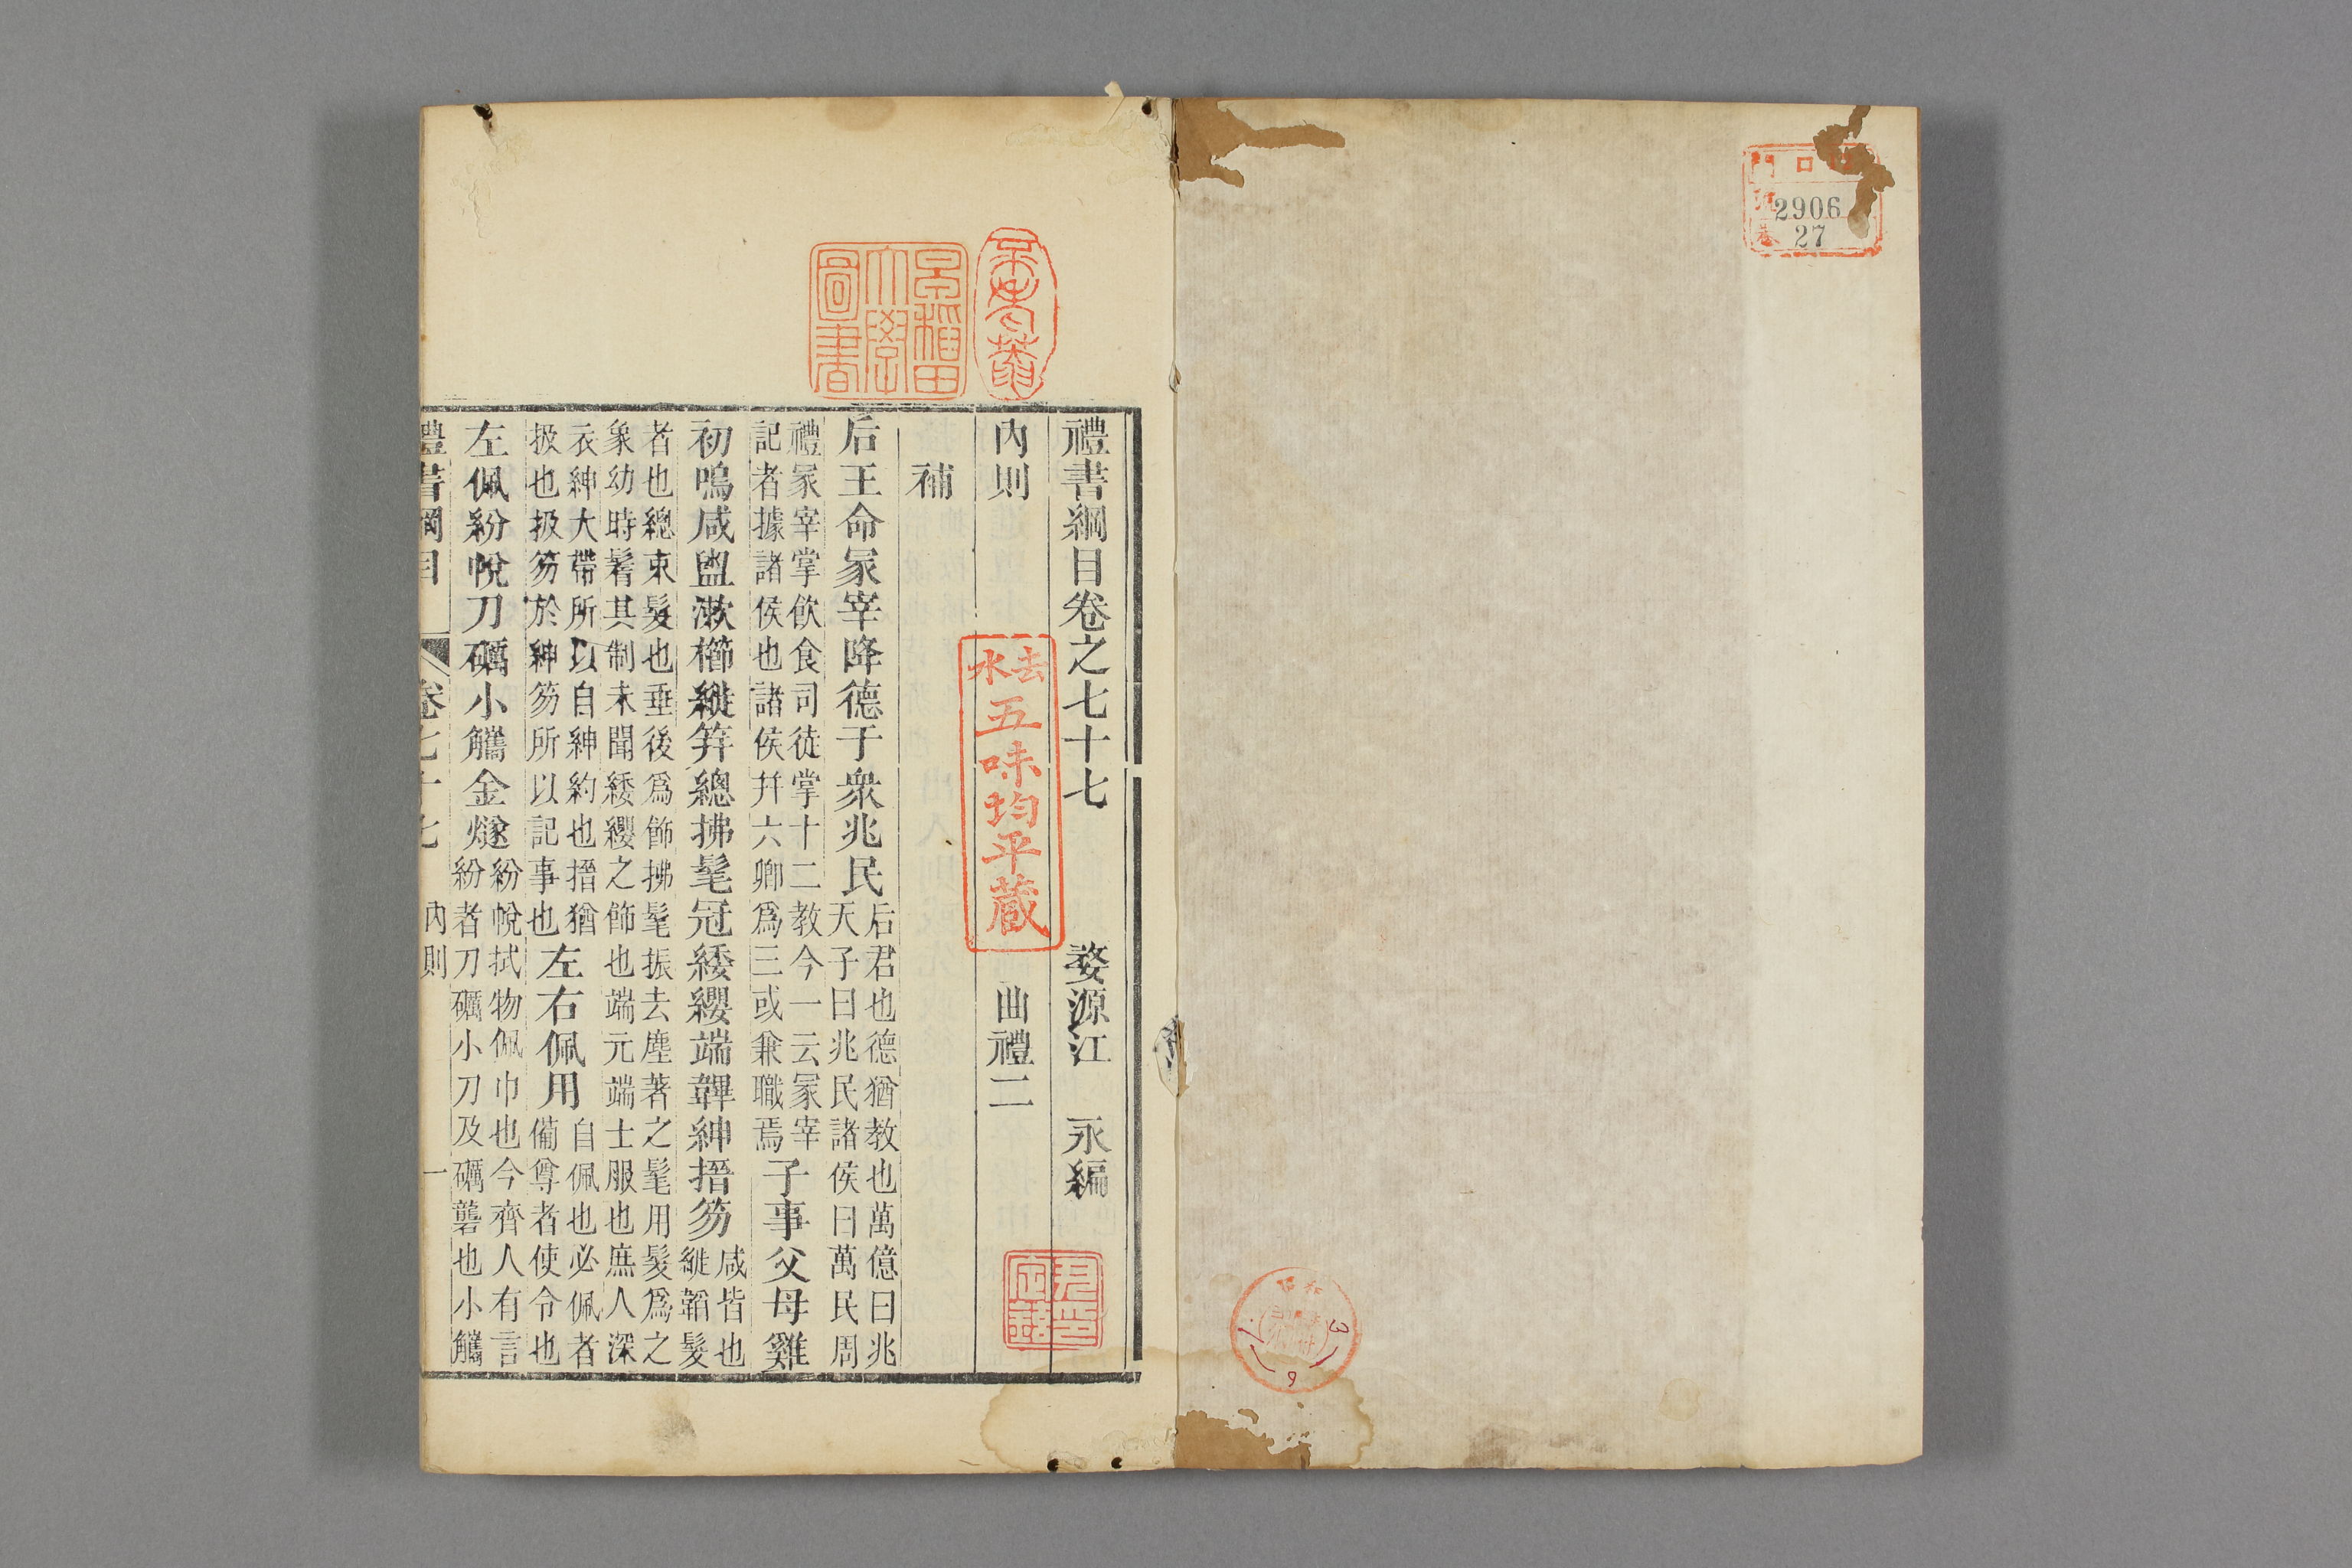 口
門
2906
卷 27
禮書綱目卷之七十七 婺源江 永編
內則 曲禮二
補
后王命冢宰降德于衆兆民后君也德猶教也萬億曰兆
天子曰兆民諸侯曰萬民周
禮冢宰掌飲食司徒掌十二教今一云冢宰
記者據諸侯也諸侯幷六卿爲三或兼職焉子事父母雞
初鳴咸盥漱櫛縰笄總拂髦冠緌纓端韠紳搢笏咸皆也
縰韜髮
者也總束髮也垂後爲飾拂髦振去塵著之髦用髮爲之
象幼時鬌其制未聞緌纓之飾也端元端士服也庶人深
衣紳大帶所以自紳約也搢猶
扱也扱笏於紳笏所以記事也左右佩用自佩也必佩者
備尊者使令也
左佩紛帨刀礪小觿金燧紛帨拭物佩巾也今齊人有言
紛者刀礪小刀及礪礱也小觿
禮書綱目 卷七十七 內則 一
早稻田大學圖書
去水
五味均平蔵